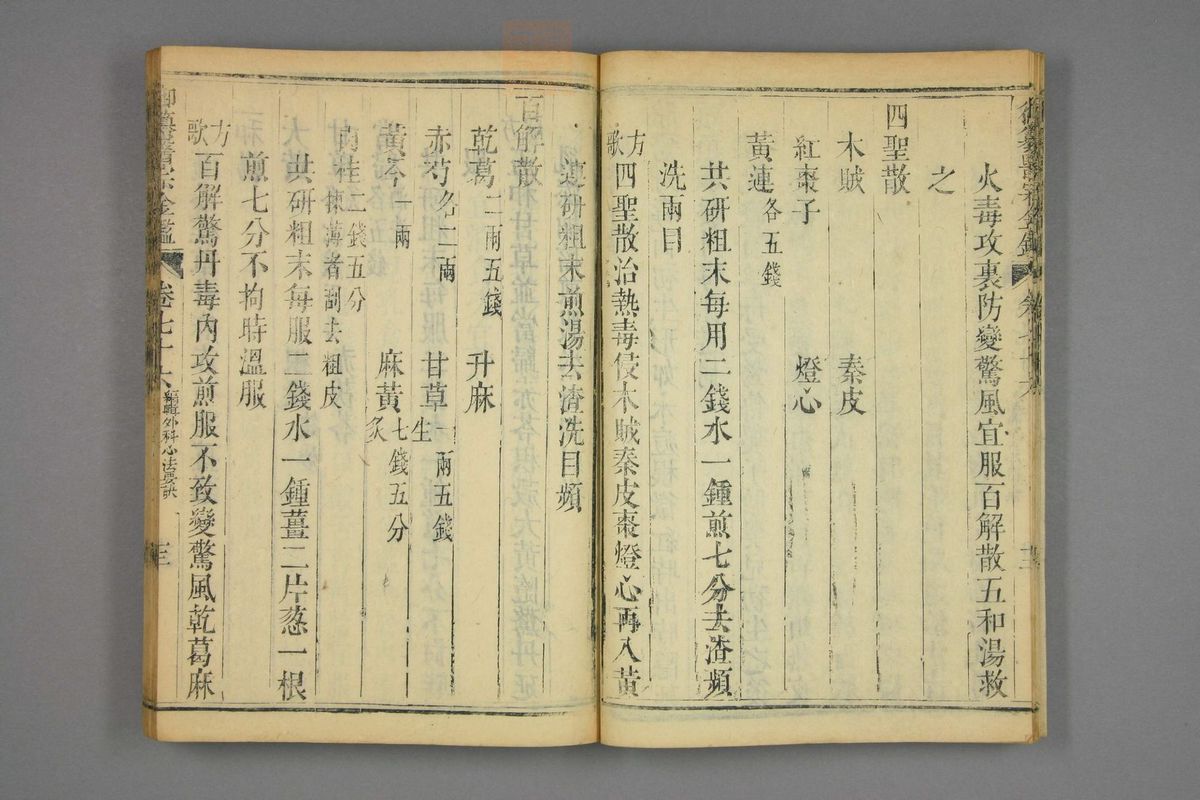 火毒攻裏防變驚風宜服百解散五和湯救
之
四聖散
木賊　秦皮
紅棗子　燈心
黃連各五錢
共研粗末每用二錢水一鍾煎七分去渣頻
洗兩目
方歌　四聖散治熱毒侵木賊秦皮棗燈心再入黃
連研粗末煎湯去渣洗目頻
百解散
乾葛二兩五錢　升麻
赤芍各二兩　甘草生一兩五錢
黃芩一兩　麻黃炙七錢五分
肉桂二錢五分揀薄者刮去粗皮
共研粗末每服二錢水一鍾薑二片蔥一根
煎七分不拘時溫服
方歌　百解驚丹毒內攻煎服不致變驚風乾葛麻
御纂醫宗金鑑　卷七十六　編輯外科心法要訣　三